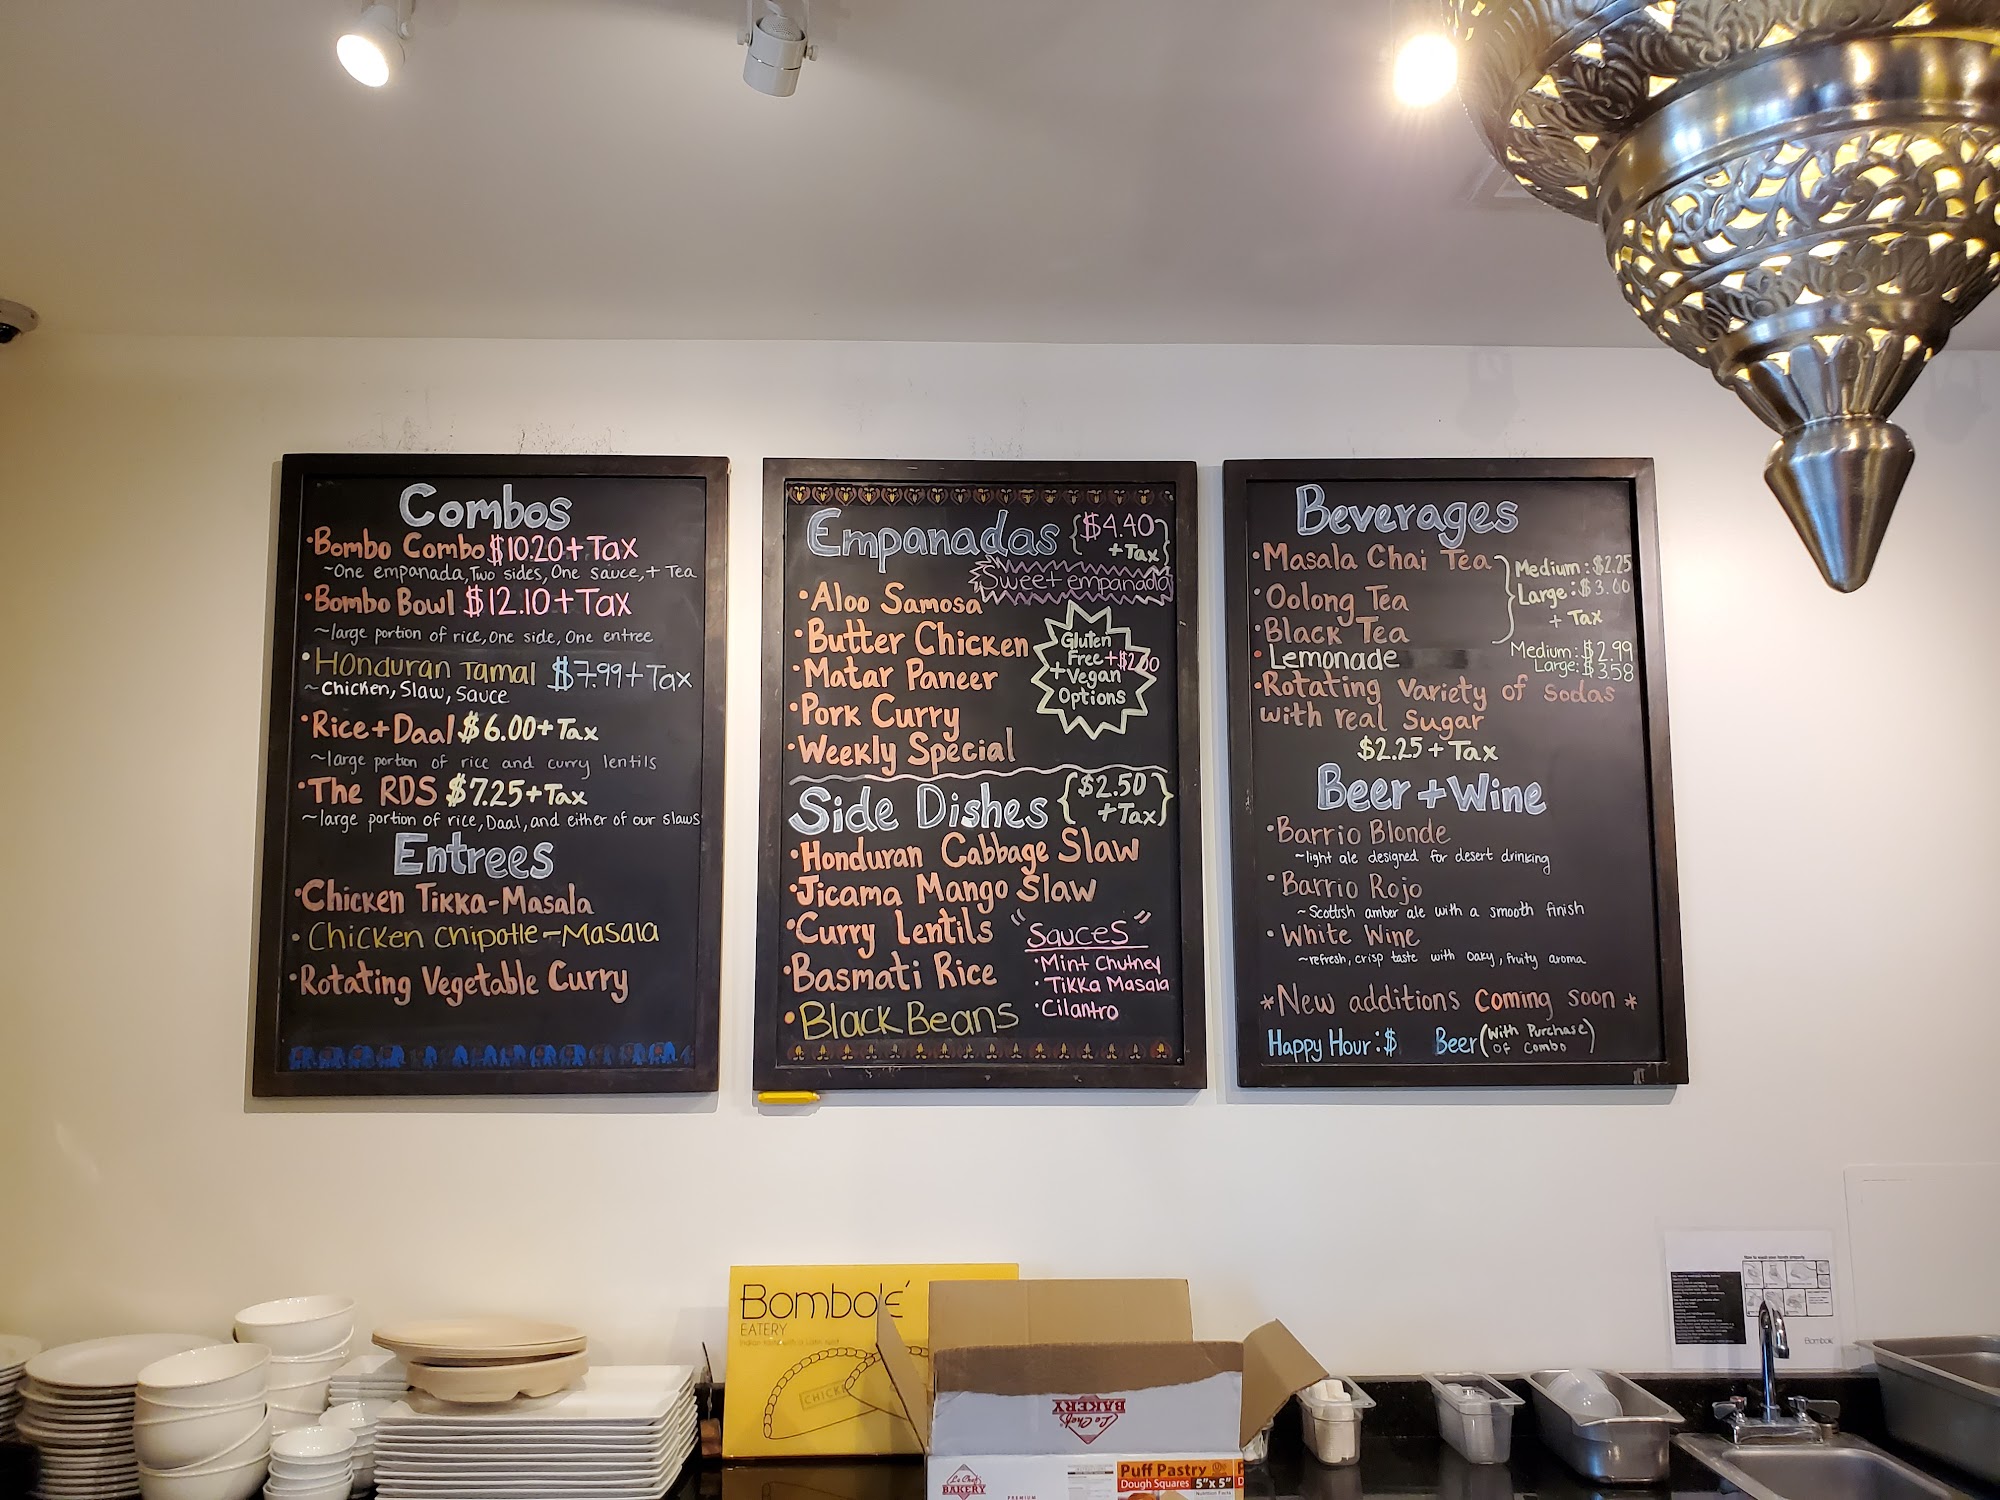 Combos
•Bombo Combo $10.20+Tax
~One empanada, Two sides, One sauce, + Tea
•Bombo Bowl $12.10+Tax
~large portion of rice, One side, One entree
•Honduran Tamal $7.99+Tax
~Chicken, Slaw, Sauce
•Rice+Daal $6.00+Tax
~large portion of rice and curry lentils
•The RDS $7.25+Tax
~large portion of rice, Daal, and either of our slaws
Entrees
•Chicken Tikka-Masala
•Chicken Chipotle-Masala
•Rotating Vegetable Curry
Empanadas {$4.40
+Tax}
Sweet empanada
•Aloo Samosa
•Butter Chicken
•Matar Paneer
•Pork Curry
•Weekly Special
Gluten
Free +$2.00
+Vegan
Options
Side Dishes {$2.50
+Tax}
•Honduran Cabbage Slaw
•Jicama Mango Slaw
•Curry Lentils
•Basmati Rice
•Black Beans
"Sauces"
•Mint Chutney
•Tikka Masala
•Cilantro
Beverages
•Masala Chai Tea
•Oolong Tea
•Black Tea
Medium: $2.25
Large: $3.00
+ Tax
•Lemonade
Medium: $2.99
Large: $3.58
•Rotating variety of sodas
with real sugar
$2.25+Tax
Beer+Wine
•Barrio Blonde
~light ale designed for desert drinking
•Barrio Rojo
~Scottish amber ale with a smooth finish
•White Wine
~refresh, crisp taste with oaky, fruity aroma
*New additions coming soon*
Happy Hour: $ Beer (With Purchase
Of Combo)
Bombolé
EATERY
Indian food with a Latin twist
Le Chef's
BAKERY
Le Chef's
BAKERY
PREMIUM
Puff Pastry
Dough Squares 5"x5"
Nutrition Facts
How to wash your hands properly
Bombolé